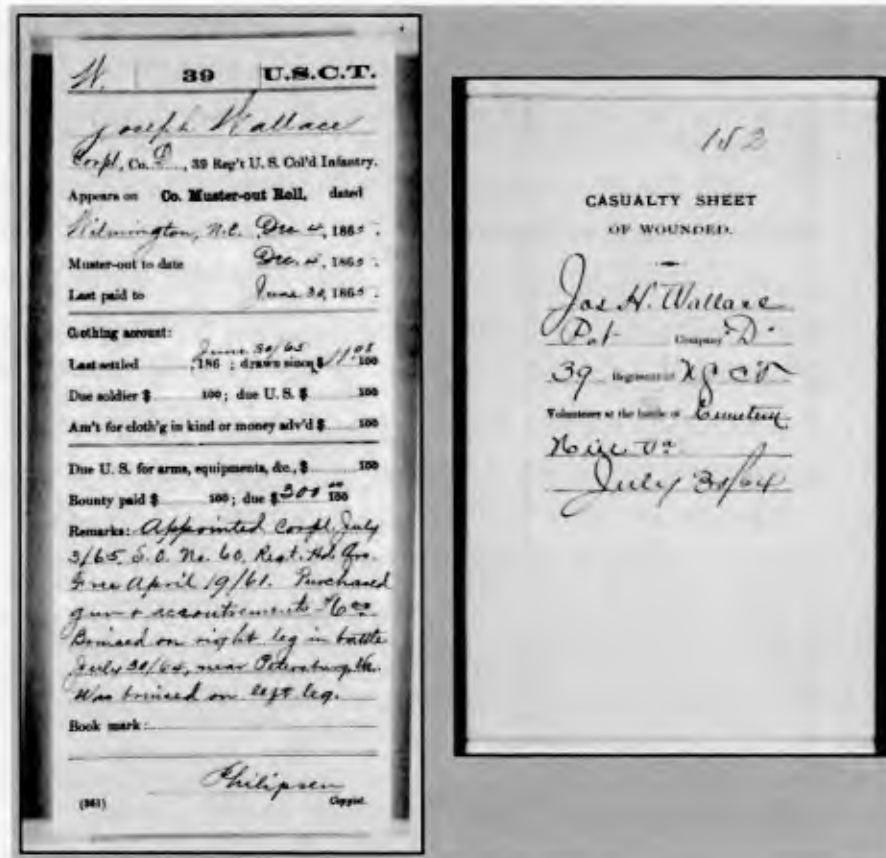 W. 39 U.S.C.T.
Joseph Wallace
Corpl, Co. D, 39 Reg't U. S. Col'd Infantry.
Appears on Co. Muster-out Roll, dated
Wilmington, N.C. Dec 4, 1865.
Muster-out to date Dec. 4, 1865.
Last paid to June 30, 1865.
Clothing account:
June 30/65
Last settled , 186 ; drawn since $ 100
Due soldier $ 100; due U. S. $ 100
Am't for cloth'g in kind or money adv'd $ 100
Due U. S. for arms, equipments, &c., $ 100
Bounty paid $ 100; due $ 300 00 100
Remarks: Appointed Corpl. July
3/65. S.O. No. 60. Regt. Hd. Qrs.
Free April 19/61. Purchased
gun & accoutrements 6 00
Bruised on right leg in battle
July 30/64, near Petersburg, Va.
Was bruised on left leg.
Book mark:
Philipsen
(361) Copyist.
152
CASUALTY SHEET
OF WOUNDED.
Jos H. Wallace
Pvt Company "D"
39 Regiment of U S C T
Volunteers at the battle of Cemetery
Hill Va
July 30/64